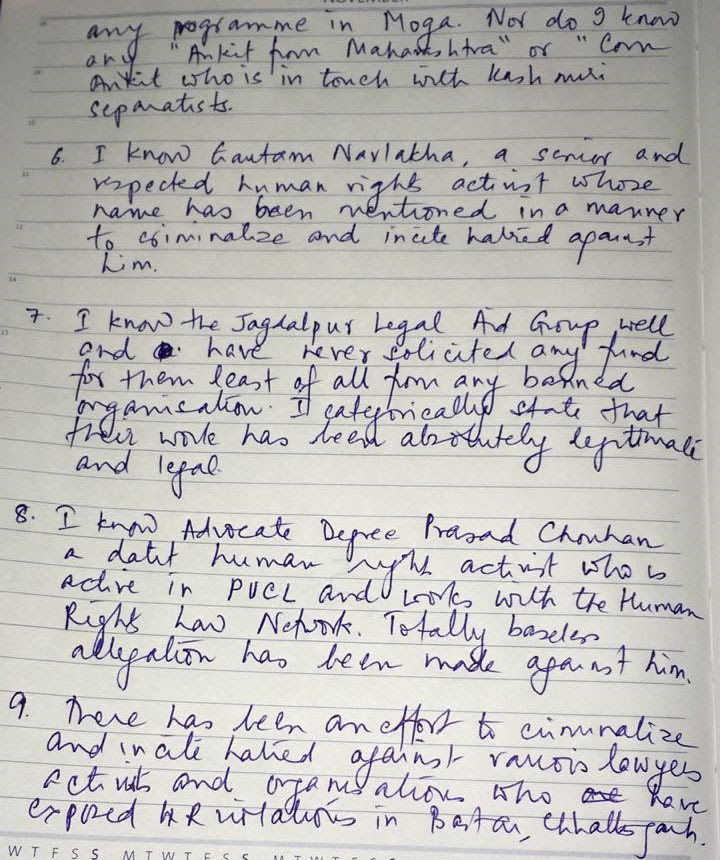 any programme in Moga. Nor do I know
any "Ankit from Maharashtra" or "Com
Ankit who is in touch with Kashmiri
separatists.
6. I know Gautam Navlakha, a senior and
respected human rights activist whose
name has been mentioned in a manner
to criminalize and incite hatred against
him.
7. I know the Jagdalpur Legal Aid Group well
and have never solicited any fund
for them least of all from any banned
organisation. I categorically state that
their work has been absolutely legitimate
and legal.
8. I know Advocate Degree Prasad Chouhan
a dalit human right activist who is
active in PUCL and works with the Human
Rights Law Network. Totally baseless
allegation has been made against him.
9. There has been an effort to criminalize
and incite hatred against various lawyers
activists and organisations who have
exposed HR violations in Bastar, Chhattisgarh.
W T F S S M T W T F S S M T W T F S S